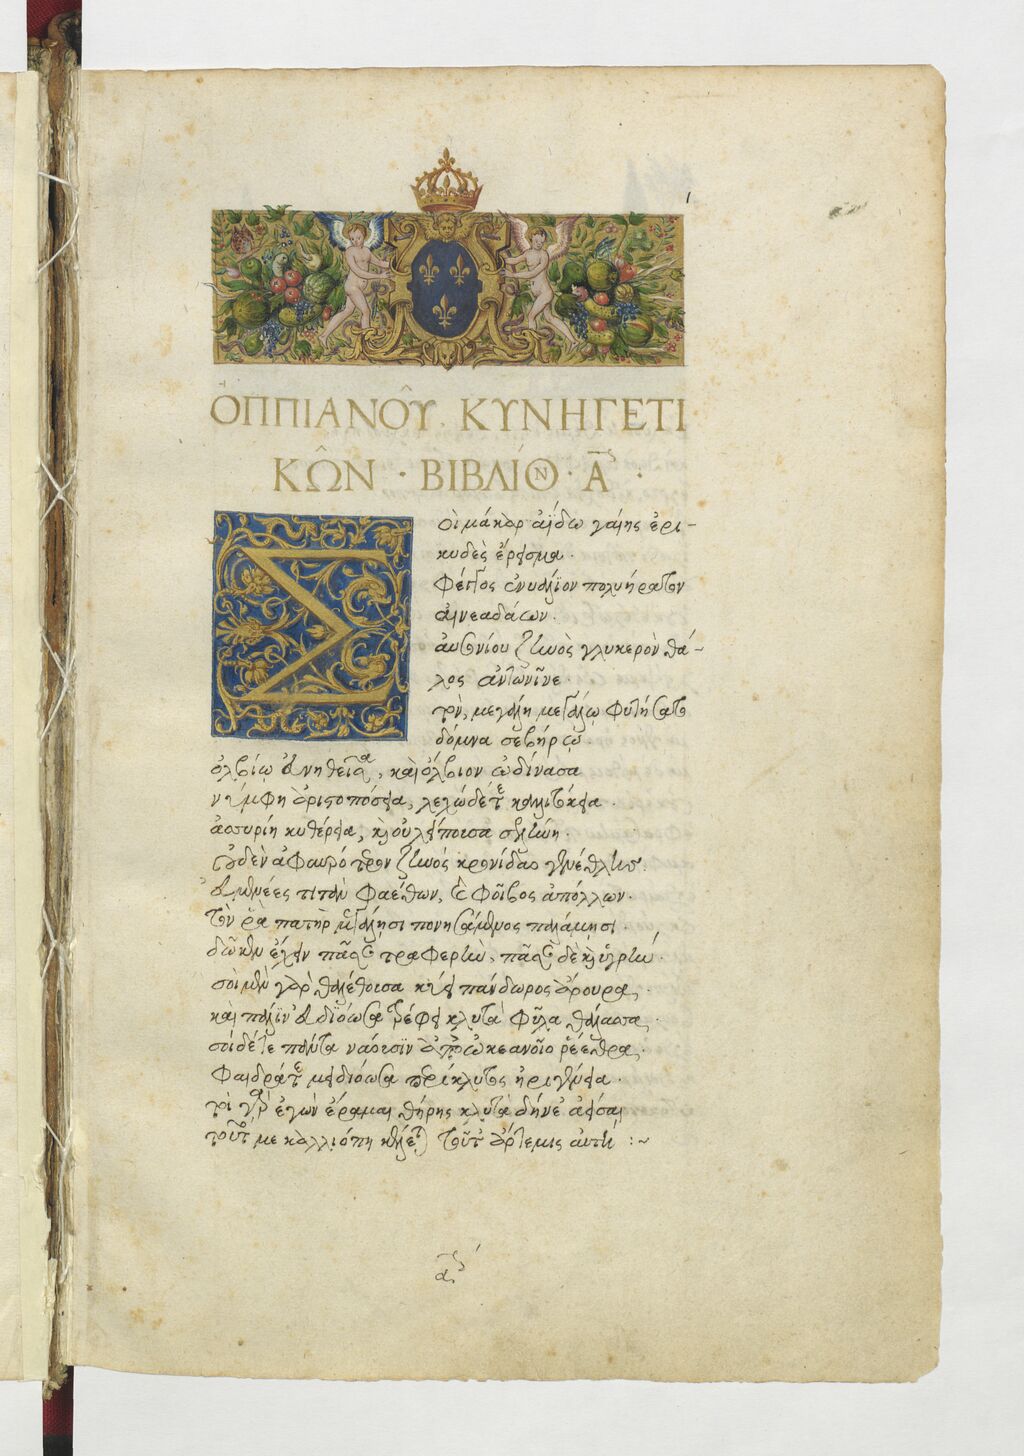 1
ὈΠΠΙΑΝΟΥ͂. ΚΥΝΗΓΕΤΙ
ΚΩ͂Ν · ΒΙΒΛΊΟΝ · Α ·
Σοὶ μάκαρ ἀείδω γαίης ἐρι-
κυδὲς ἔρεισμα.
Φέγγος ἐνυαλίων πολυήρατον
αἰνεαδάων.
αὐσονίου ζηνὸς γλυκερὸν θά-
λος ἀντωνῖνε.
τὸν, μεγάλη μεγάλῳ φυτήσατο
δόμνα σεβήρῳ.
ὀλβίῳ εὐνηθεῖσα, καὶ ὄλβιον ὠδίνασα
νύμφη ἀριστοπόσεια, λεχὼ δέ τε καλλιτόκεια.
ἀσσυρίη κυθέρεια, καὶ οὐ λείπουσα σελήνη.
οὐδὲν ἀφαυρότερον ζηνὸς κρονίδαο γενέθλης.
εὐμενέοις τιτὰν φαέθων, καὶ φοῖβος ἀπόλλων.
τόν ῥα πατὴρ μεγάλῃσι πονησάμενος παλάμῃσι.
δῶκεν ἔχειν πᾶσαν τραφερὴν, πᾶσαν δὲ καὶ ὑγρήν.
σοὶ μὲν γὰρ θαλέθουσα κύει πάνδωρος ἄρουρα.
καὶ πάλιν εὐδιόωσα τρέφει κλυτὰ φῦλα θάλασσα.
σοὶ δέ τε πάντα νάουσιν ἀπὸ ὠκεανοῖο ῥέεθρα.
φαιδρά τε μειδιόωσα περίκλυτος ἠριγένεια.
τοὶ γὰρ ἐγὼν ἔραμαι θήρης κλυτὰ δήνε᾽ ἀεῖσαι
τοῦτό με καλλιόπη κέλεται τοῦτ᾽ ἄρτεμις αὐτή :~
α